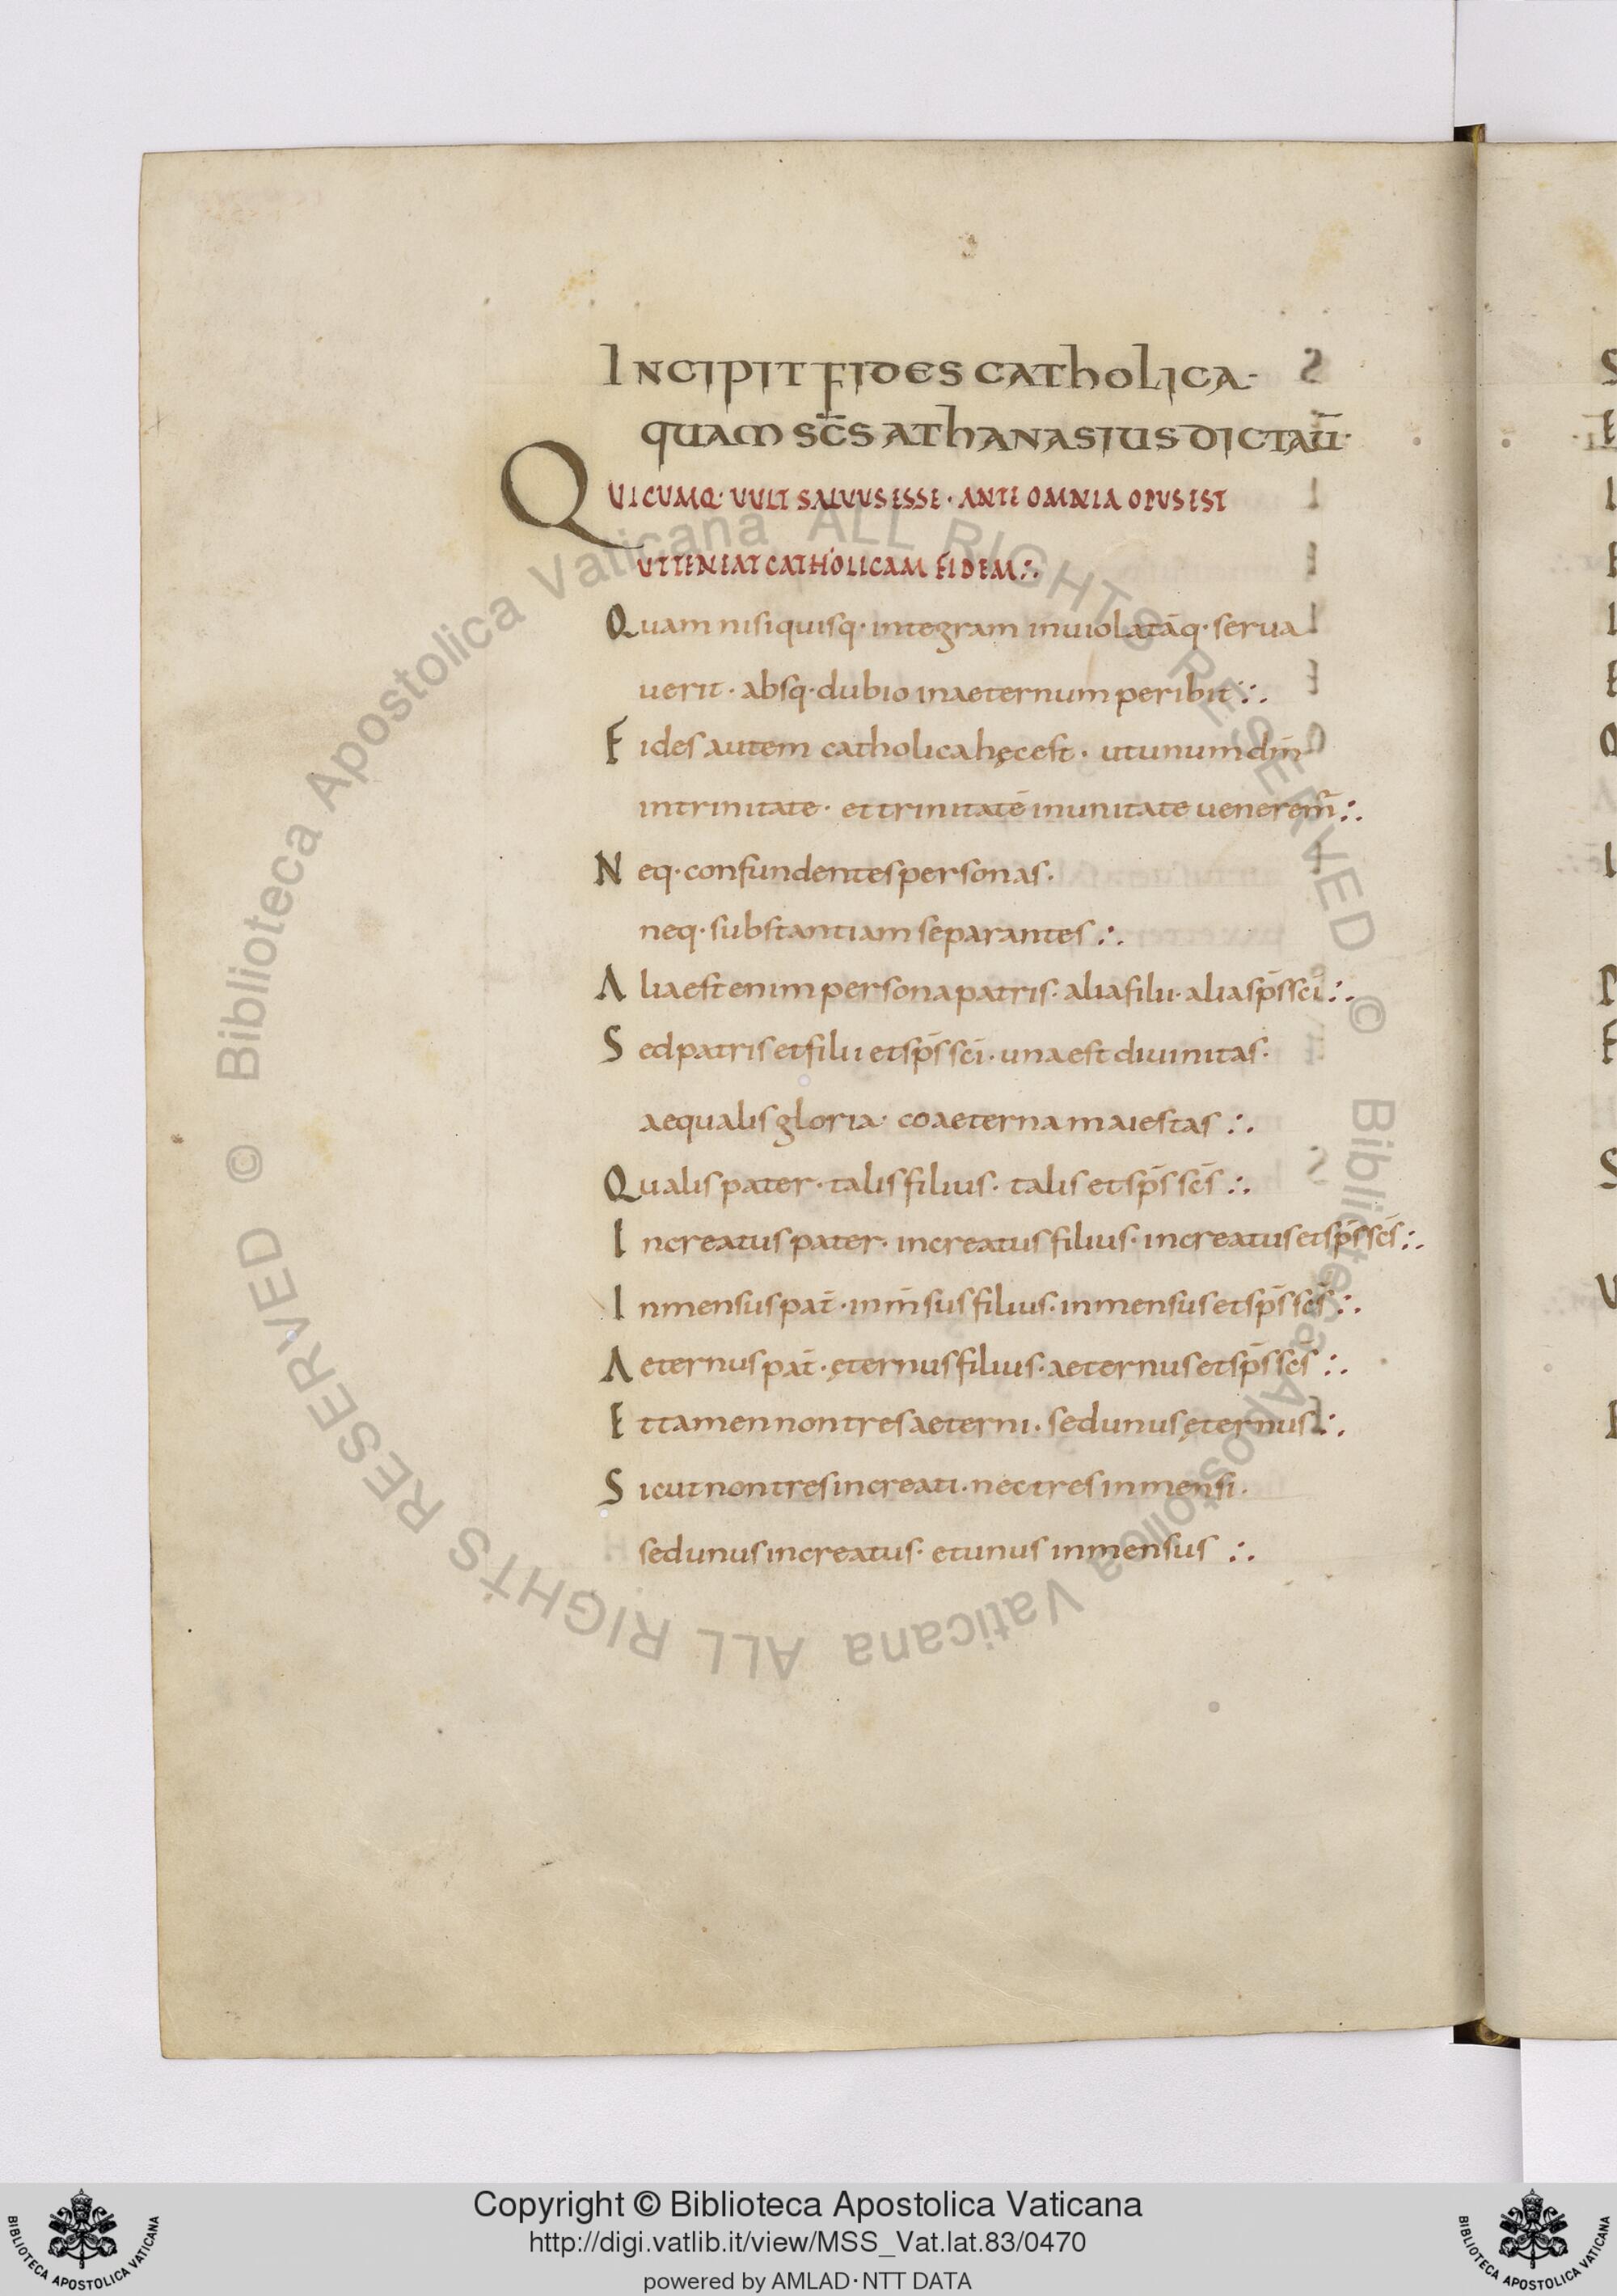 INCIPIT FIDES CATHOLICA·
QUAM SC̄S ATHANASIUS DICTAU̅·
QUICUMQ· VULT SALVUS ESSE· ANTE OMNIA OPUS EST
UT TENEAT CATHOLICAM FIDEM∴
Quam nisi quisq· integram inuiolatāq· serua
uerit· absq· dubio inaeternum peribit∴
Fides autem catholica hęc est· ut unum dm̄
in trinitate· et trinitatē in unitate ueneremˀ∴
Neq· confundentes personas·
neq· substantiam separantes∴
Alia est enim persona patris· alia filii· alia sp̄s sc̄i∴
Sed patris et filii et sp̄s sc̄i· una est diuinitas·
aequalis gloria· coaeterna maiestas∴
Qualis pater· talis filius· talis et sp̄s sc̄s∴
Increatus pater· increatus filius· increatus et sp̄s sc̄s∴
Inmensus pat̄· inm̄sus filius· inmensus et sp̄s sc̄s∴
Aeternus pat̄· ęternus filius· aeternus et sp̄s sc̄s∴
Et tamen non tres aeterni· sed unus ęternus∴
Sicut non tres increati· nec tres inmensi·
sed unus increatus· et unus inmensus∴
© Biblioteca Apostolica Vaticana ALL RIGHTS RESERVED © Biblioteca Apostolica Vaticana ALL RIGHTS RESERVED
Copyright © Biblioteca Apostolica Vaticana
http://digi.vatlib.it/view/MSS_Vat.lat.83/0470
powered by AMLAD·NTT DATA
BIBLIOTECA APOSTOLICA VATICANA
BIBLIOTECA APOSTOLICA VATICANA